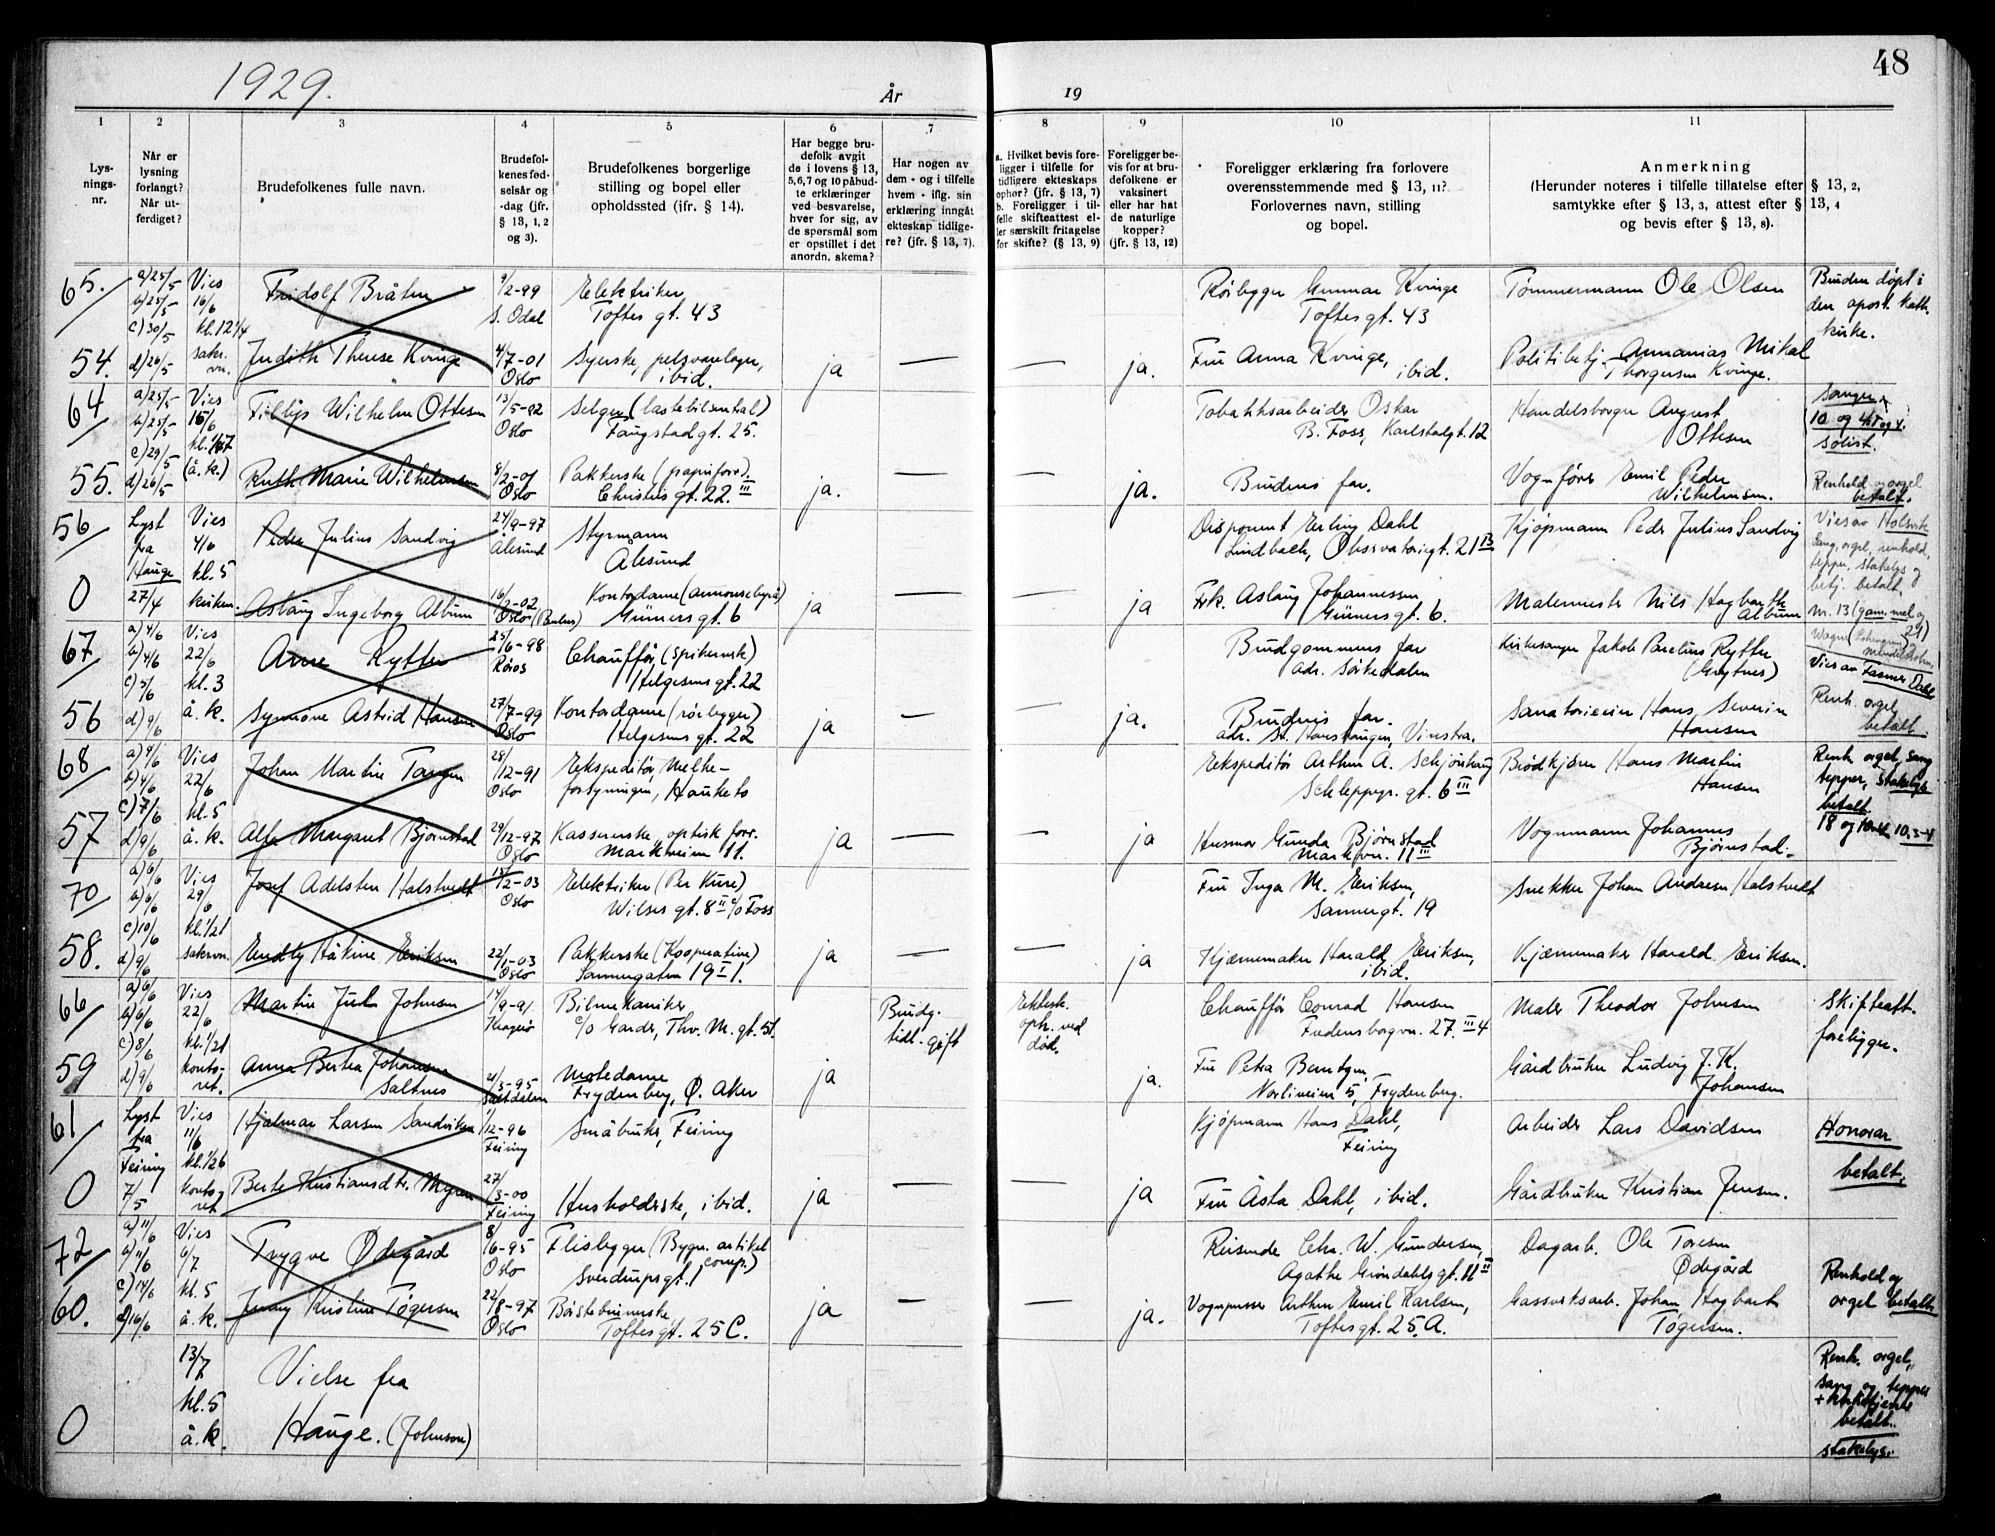 1929.
År
19
48
1
2
3
4
5
6
7
8
9
10
11
Lys-
nings-
nr.
Når er
lysning
forlangt?
Når ut-
ferdiget?
Brudefolkenes fulle navn.
Brudefol-
kenes fød-
selsår og
-dag (jfr.
§ 13, 1, 2
og 3).
Brudefolkenes borgerlige
stilling og bopel eller
opholdssted (ifr. § 14).
Har begge bru-
defolk avgit
de i lovens § 13,
5,6,7 og 10 påbud-
te erklæringer
ved besvarelse,
hver for sig, av
de spørsmål som
er opstillet i det
anordn. skema?
Har nogen av
dem - og i tilfelle
hvem - iflg. sin
erklæring inngått
ekteskap tidlige-
re? (jfr. § 13, 7).
a. Hvilket bevis fore-
ligger i tilfelle for
tidligere ekteskaps
ophør? (jfr. § 13, 7)
b. Foreligger i til-
felle skifteattest el-
ler særskilt fritagelse
for skifte? (§ 13, 9)
Foreligger be-
vis for at bru-
defolkene er
vaksinert
eller har hat
de naturlige
kopper?
(jfr. § 13, 12)
Foreligger erklæring fra forlovere
overensstemmende med § 13, 11?
Forlovernes navn, stilling
og bopel.
Anmerkning
(Herunder noteres i tilfelle tillatelse efter § 13, 2,
samtykke efter § 13, 3, attest efter § 13, 4
og bevis efter § 13, 8).
65.
a) 25/5
b) 25/5
c) 30/5
Vies
16/6
kl. 12 1/4
Fridolf Bråten
9/2-99
S. Odal
Elektriker
Toftes gt. 43
Rørlegger Gunnar Kvinge
Toftes gt. 43
Tømmermann Ole Olsen
Bruden døpt i
den apost. kath.
kirke.
54.
d) 26/5
sakr.
Judith Therese Kvinge
4/7-01
Oslo
Syerske, pelsvarelager,
ibid.
ja
—
—
ja.
Fru Anna Kvinge,
ibid.
Politibetj. Annanias Mikal
Thorgersen Kvinge.
64
a) 25/5
b) 25/5
c) 29/5
Vies
15/6
Fillip Wilhelm Ottesen
13/5-92
Oslo
Selger (lastebilsentral)
Faugstadgt. 25.
Tobakksarbeider Oskar
B. Foss, Karlstadgt. 12
Handelsborger August
Ottesen
Sanger
solist.
55.
d) 26/5
(å. k.)
Ruth Marie Wilhelmsen
8/2-01
Oslo
Pakkerske (papirforr.)
Christies gt. 22 III
ja.
—
—
ja.
Brudens far.
Vognfører Emil Peder
Wilhelmsen.
Renhold og orgel
betalt.
56
Lyst
fra
Hauge
Vies
4/6
kl. 5
Peder Julius Sandvig
24/9-97
Ålesund
Styrmann
Ålesund
Disponent Erling Dahl
Lindbaek, Observatoriegt. 21 B
Kjøpmann Peder Julius Sandvig
Vies av Holsvik
Sang, orgel, renhold,
tepper, stakelys og
betj. betalt,
0
27/4
kirken.
Aslaug Ingeborg Album
16/2-02
Oslo (Paulus)
Kontordame (annonsebyrå)
Grüners gt. 6
ja
—
ja
Frk. Aslaug Johannessen
Grüners gt. 6.
Malermester Nils Hagbarth
Album
67
a) 4/6
b) 4/6
c) 5/6
Vies
22/6
kl. 3
Arne Rytter
25/6-98
Røros
Chauffør (spikerverk)
Helgesens gt. 22
Brudgommens far
adr. Sørkedalen
Kirkesanger Jakob Parelius Rytter
Vies av Fasmer Dahl
56
d) 9/6
å. k.
Synnøve Astrid Hansen
27/7-99
Oslo
Kontordame (rørlegger)
Helgesens gt. 22
ja
—
—
ja.
Brudens far.
adr. St. Hanshaugen, Vinstra.
Sanatorieeier Hans Severin
Hansen
Renh. orgel
betalt
68
a) 4/6
b) 4/6
c) 7/6
Vies
22/6
kl. 5
Johan Martin Tangen
28/12-91
Oslo
Ekspeditør, Melke-
forsyningen, Hauketo
Ekspeditør Arthur A. Schjønhaug
Schleppegr. gt. 6 III
Brødkjører Hans Martin
Hansen
Renh. orgel, sang
tepper, stakelys
betalt
57
d) 9/6
å. k.
Alfa Margaret Bjørnstad
29/12-97
Oslo
Kassererske, optisk forr.
Markveien 11.
ja
—
—
ja
Husmor Gunda Bjørnstad
Markvn. 11 III
Vognmann Johannes
Bjørnstad.
70
a) 6/6
b) 6/6
c) 10/6
Vies
29/6
kl. 1/2 1
Josef Adelsten Halstvedt
Oslo
Elektriker (Per Kure)
Wilses gt. 8 II c/o Foss
Fru Inga M. Eriksen,
Sannergt. 19
Snekker Johan Andresen Halstvedt
58.
d) 9/6
sakrvn.
Håkine Eriksen
22/1-03
Oslo
Pakkerske (Kooperative)
Sannergaten 19 I 1.
ja
—
—
ja
Kjærnemaker Harald Eriksen,
ibid.
Kjærnemaker Harald Eriksen.
66
a) 6/6
b) 6/6
c) 8/6
Vies
22/6
kl. 1/2 1
Martin Juel Johnsen
14/9-91
Kragerø
Bilmekaniker
c/o Garder, Thv. M. gt. 51.
Brudg.
tidl. gift
Ektesk.
oph. ved
død.
Chauffør Conrad Hansen
Fredensborgvn. 27 III 4
Maler Theodor Johnsen
Skifteatt.
foreligger.
59
d) 9/6
konto-
ret.
Anna Bertea Johansen
Saltnes
21/3-95
Saltdalen
Motedame
Frydenberg, Ø. Aker
ja
ja.
Fru Petra Berntzen,
5, Frydenberg.
Gårdbruker Ludvig J. K.
Johansen
61
Lyst
fra
Feiring
Vies
11/6
kl. 1/2 6
Hjalmar Larsen Sandviken
1/12-96
Feiring
Småbruker, Feiring
Kjøpmann Hans Dahl,
Feiring
Arbeider Lars Davidsen
Honorar
betalt.
0
7/5
konto-
ret
Berte Kristiansdtr. Myren
27/3-00
Feiring
Husholderske, ibid.
ja
—
ja
Fru Åsta Dahl, ibid.
Gårdbruker Kristian Jensen.
72
a) 11/6
b) 11/6
c) 14/6
Vies
6/7
kl. 5
Trygve Ødegård
8/6-95
Oslo
Flislegger (Bygn. artikel
comp.)
Sverdrupsgt. 1
Reisende Chr. W. Gundersen,
Agathe Grøndahls gt. 11 II
Dagarb. Ole Toresen
Ødegård
Renhold og
orgel betalt
60.
d) 16/6
å. k.
Jenny Kristine Tøgersen
22/8-97
Oslo
Børstebinnerske
Toftes gt. 25 C.
ja
—
—
ja.
Vognpusser Arthur Emil Karlsen,
Toftes gt. 25 A.
Gassverksarb. Johan Hagbart
Tøgersen.
0
13/7
kl. 5
å. k.
Vielse fra
Hauge. (Johnson)
Renh. orgel,
sang og tepper
betalt.
stakelys.